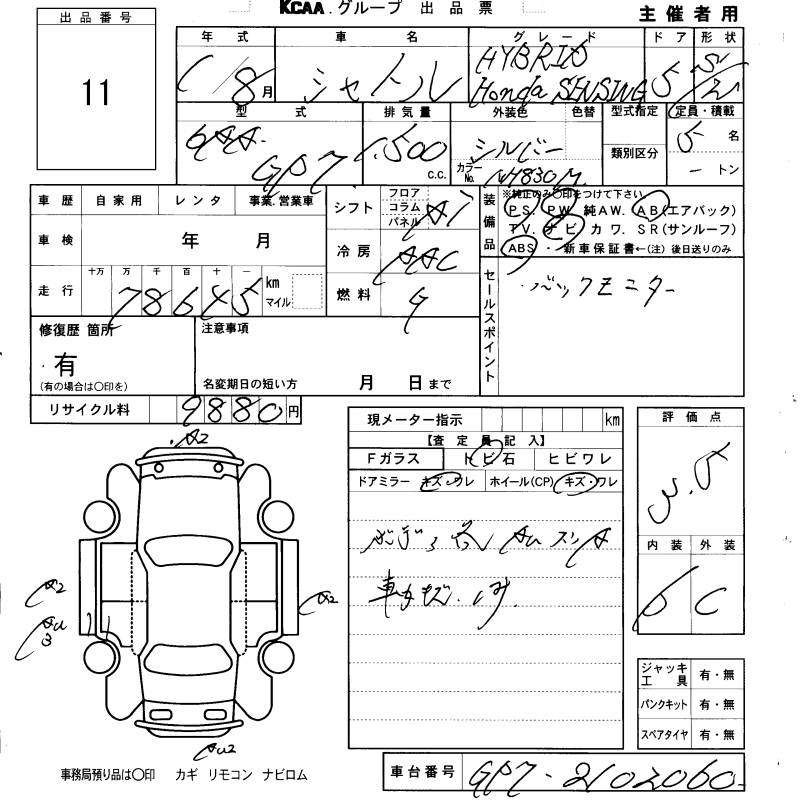 KCAA.グループ 出品票
主催者用
出品番号
11
年式 車名 グレード ドア 形状
1/8月 シャトル HYBRID Honda SENSING 5 S/Z
型式 排気量 外装色 色替 型式指定 定員・積載
6AA GP7 1,500 c.c. シルバー カラーNo. NH830M 類別区分 5名
ートン
車歴 自家用 レンタ 事業.営業車
車検 年 月
走行 十万 万 千 百 十 一
78645 km マイル
シフト フロア コラム パネル AT
冷房 AAC
燃料 G
装備品 ※純正のみ○印をつけて下さい
PS. PW. 純AW. AB(エアバック)
TV. ナビ カワ. SR(サンルーフ)
ABS・ 新車保証書←(注)後日送りのみ
セールスポイント
・バックモニター
修復歴 箇所
・有
(有の場合は○印を)
注意事項
名変期日の短い方 月 日まで
リサイクル料 9880円
現メーター指示 km
【査定員記入】
Fガラス トビ石 ヒビワレ
ドアミラー キズ・ワレ ホイール(CP) キズ・ワレ
評価点
内装 外装
C
A2
A2
AU
3
A2
AU2
ジャッキ工具 有・無
パンクキット 有・無
スペアタイヤ 有・無
事務局預り品は○印 カギ リモコン ナビロム
車台番号 GP7-2102060